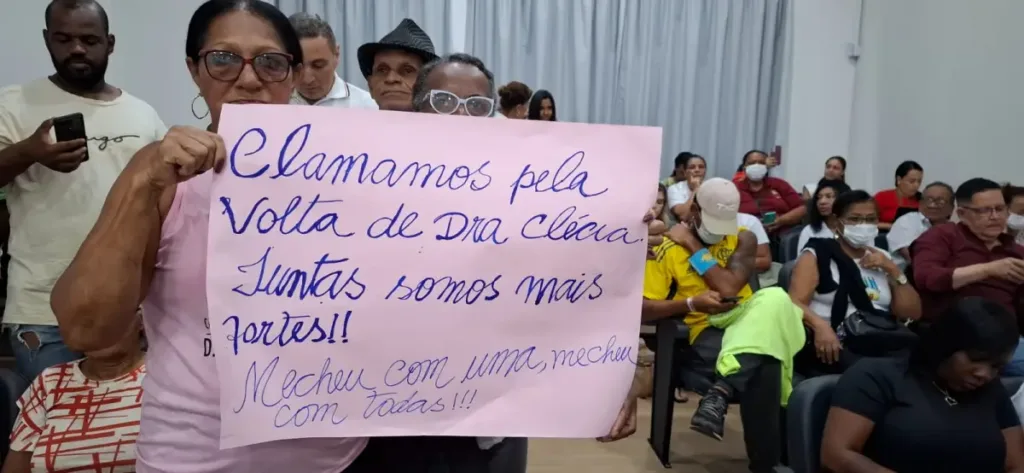 Clamamos pela
Volta de Dra Clécia.
Juntas somos mais
fortes!!
Mecheu com uma, mecheu
com todas!!!